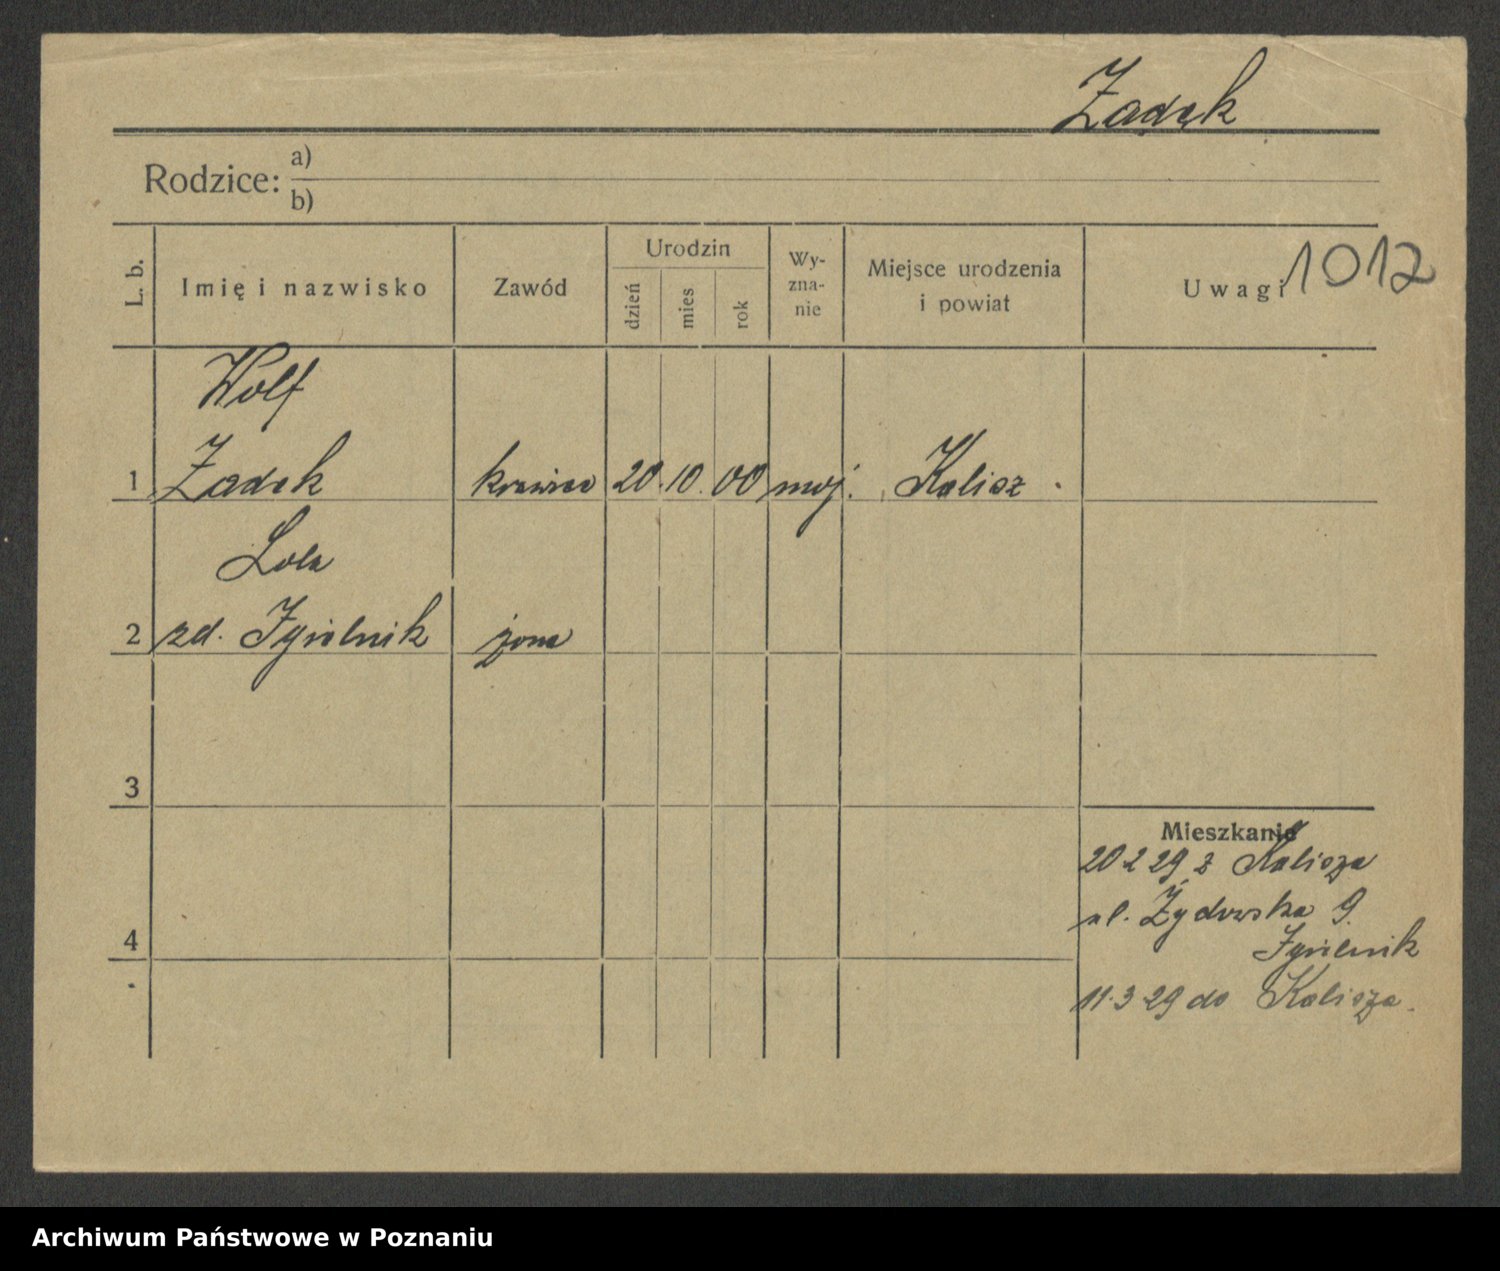 Zadęk
Rodzice: a)
b)
L. b.
Imię i nazwisko
Zawód
Urodzin
dzień
mies
rok
Wy-
zna-
nie
Miejsce urodzenia
i powiat
Uwagi 1012
Wolf
1 Zadek krawiec 20. 10. 00 moj. Kalisz.
Lola
2 zd. Igielnik żona
3
Mieszkanie
20 2 29 z Kalisza
ul. Żydowska 9.
4
Igielnik
11.3 29 do Kalisza.
Archiwum Państwowe w Poznaniu